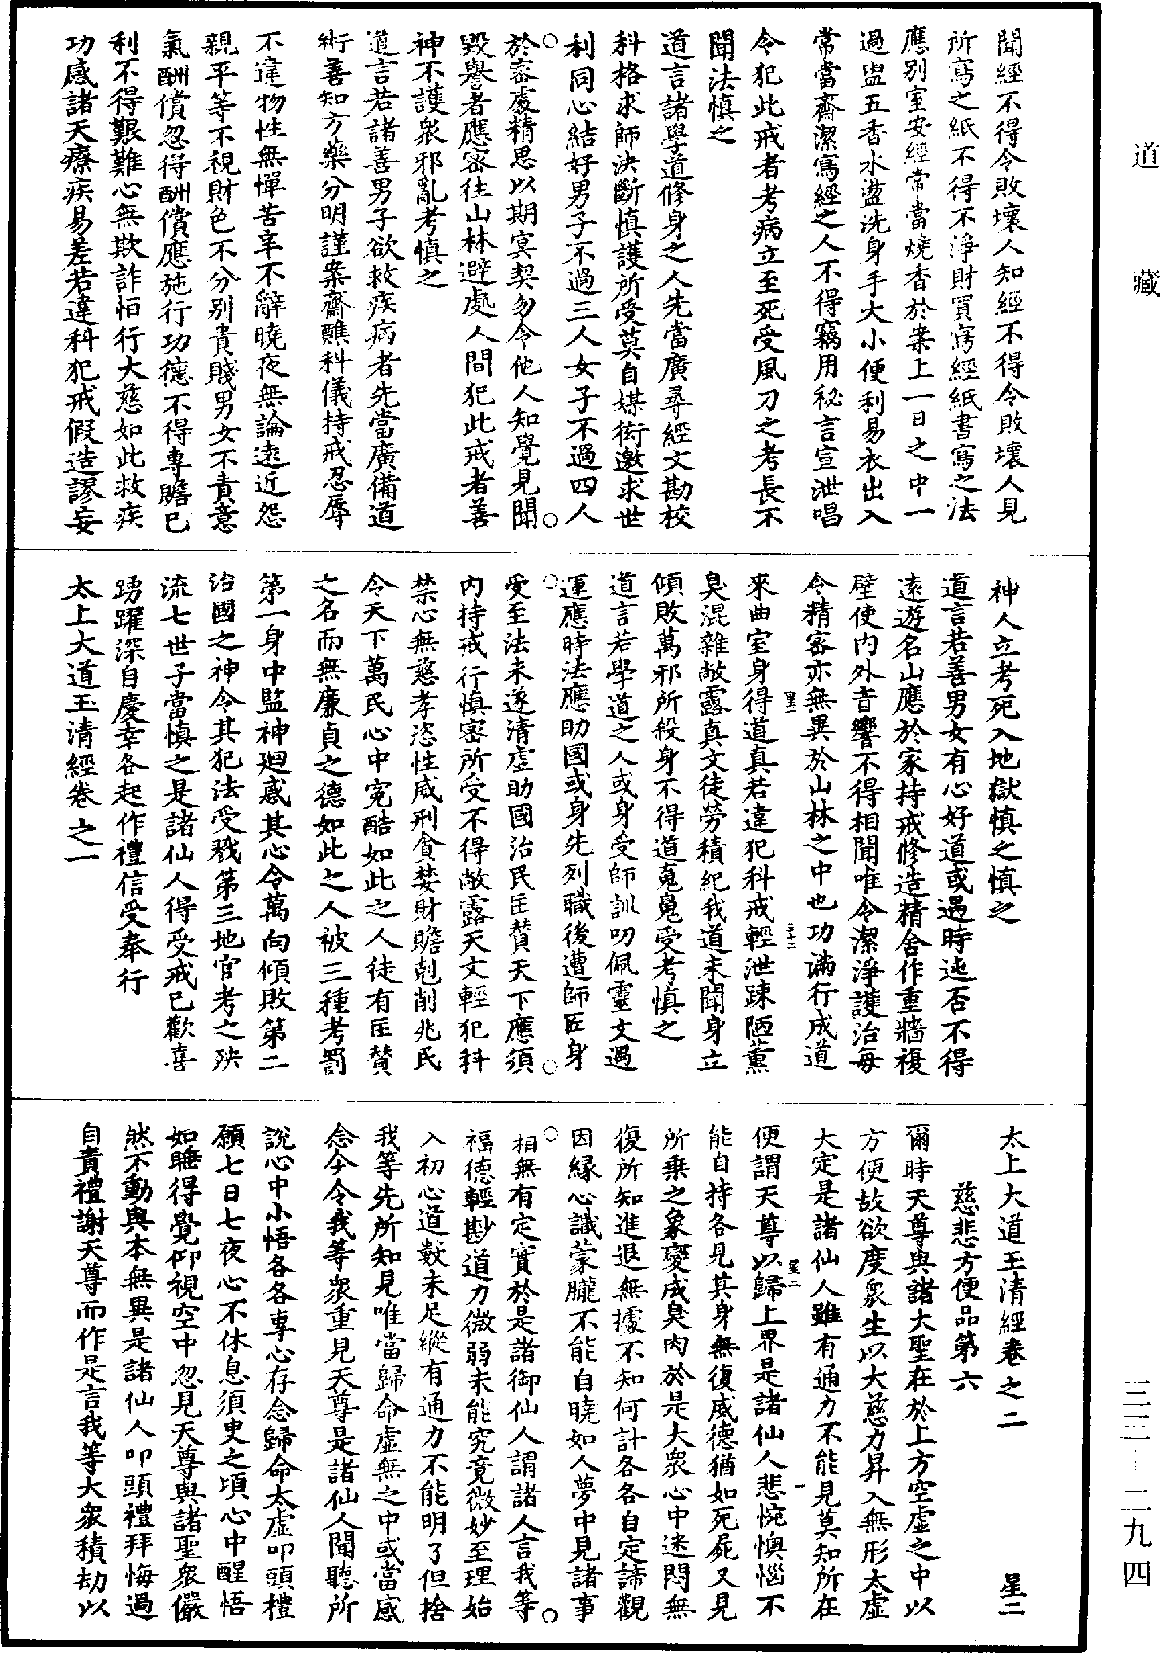 道藏
聞經不得令敗壞人知經不得令敗壞人見
所寫之紙不得不淨財買寫經紙書寫之法
應別室安經常當燒香於案上一日之中一
過盥五香水盪洗身手大小便利易衣出入
常當齋潔寫經之人不得竊用秘言宣泄唱
令犯此戒者考病立至死受風刀之考長不
聞法慎之
道言諸學道修身之人先當廣尋經文勘校
科格求師決斷慎護所受莫自媒衒邀求世
利同心結好男子不過三人女子不過四人
於密處精思以期冥契勿令他人知覺見聞
毀譽者應密往山林避處人間犯此戒者善
神不護衆邪亂考慎之
道言若諸善男子欲救疾病者先當廣備道
術善知方藥分明謹案齋醮科儀持戒忍辱
不違物性無憚苦辛不辭曉夜無論遠近怨
親平等不視財色不分別貴賤男女不責意
氣酬償忽得酬償應施行功德不得專贍己
利不得艱難心無欺詐恒行大慈如此救疾
功感諸天療疾易差若違科犯戒假造謬妄
神人立考死入地獄慎之慎之
道言若善男女有心好道或遇時迍否不得
遠遊名山應於家持戒修造精舍作重牆複
壁使內外音響不得相聞唯令潔淨護治每
令精審亦無異於山林之中也功滿行成道
來曲室身得道真若違犯科戒輕泄踈陋薰
臭混雜敞露真文徒勞積紀我道未聞身立
傾敗萬邪所殺身不得道䰟䰟受考慎之
道言若學道之人或身受師訓叨佩靈文過
運應時法應助國或身先列職後遭師匠身
受至法未遂清虛助國治民匡贊天下應須
內持戒行慎密所受不得敞露天文輕犯科
禁心無慈孝恣性威刑貪婪財贍剋削兆民
令天下萬民心中冤酷如此之人徒有匡贊
之名而無廉貞之德如此之人被三種考罰
第一身中監神迴惑其心令萬向傾敗第二
治國之神令其犯法受戮第三地官考之殃
流七世子當慎之是諸仙人得受戒已歡喜
踴躍深自慶幸各起作禮信受奉行
太上大道玉清經卷之一
太上大道玉清經卷之二　星二
慈悲方便品第六
爾時天尊與諸大聖在於上方空虛之中以
方便故欲度衆生以大慈力昇入無形太虛
大定是諸仙人雖有通力不能見莫知所在
便謂天尊以歸上界是諸仙人悲惋懊惱不
能自持各見其身無復威德猶如死屍又見
所乘之象變成臭肉於是大衆心中迷悶無
復所知進退無據不知何計各各自定諦觀
因緣心識蒙朧不能自曉如人夢中見諸事
相無有定實於是諸御仙人謂諸人言我等
福德輕尠道力微弱未能究竟微妙至理始
入初心道數未足縱有通力不能明了但捨
我等先所知見唯當歸命虛無之中或當感
念今令我等衆重見天尊是諸仙人聞聽所
說心中小悟各各專心存念歸命太虛叩頭禮
願七日七夜心不休息須臾之頃心中醒悟
如睡得覺仰視空中忽見天尊與諸聖衆儼
然不動與本無異是諸仙人叩頭禮拜悔過
自責禮謝天尊而作是言我等大衆積劫以
三三-二九四